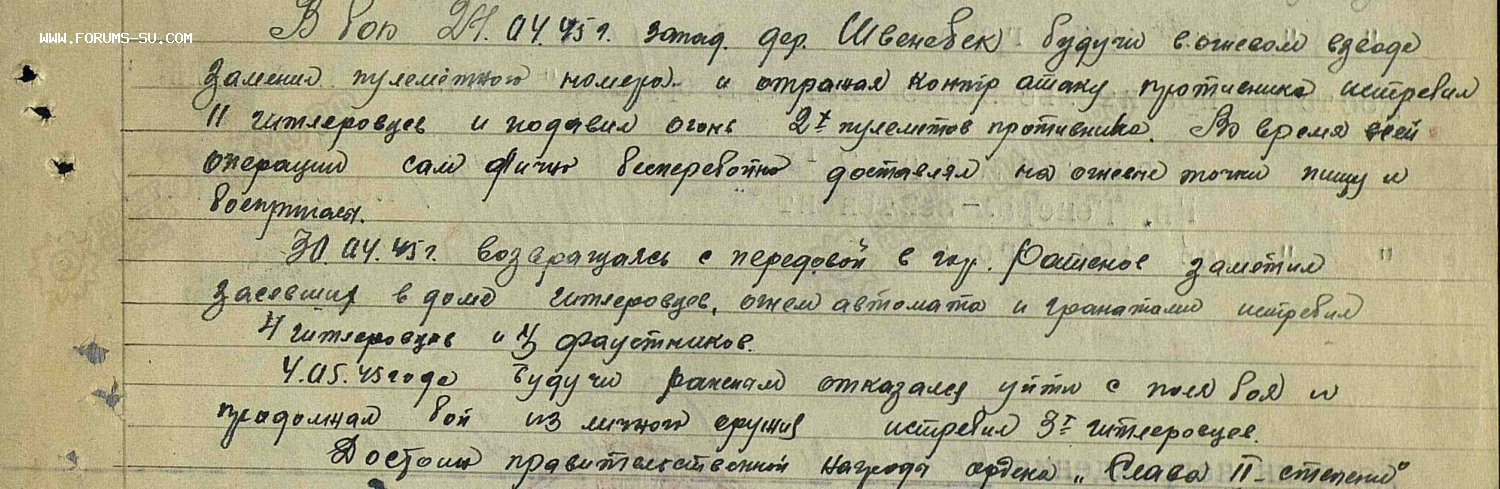 WWW.FORUMS-SU.COM
В бою 24.04.45 г. запад. дер. Швенебек будучи в огневом взводе
заменил пулемётного номера и отражая контр атаку противника истребил
11 гитлеровцев и подавил огонь 2х пулеметов противника. Во время всей
операции сам лично бесперебойно доставлял на огневые точки пищу и
боеприпасы.
30.04.45 г. возвращаясь с передовой в гор. Ратенов заметил
засевших в доме гитлеровцев, огнем автомата и гранатами истребил
4 гитлеровцев и 3 фаустников.
4.05.45 года будучи раненым отказался уйти с поля боя и
продолжал бой из личного оружия истребил 3х гитлеровцев.
Достоин правительственной награды ордена „Слава II степени"